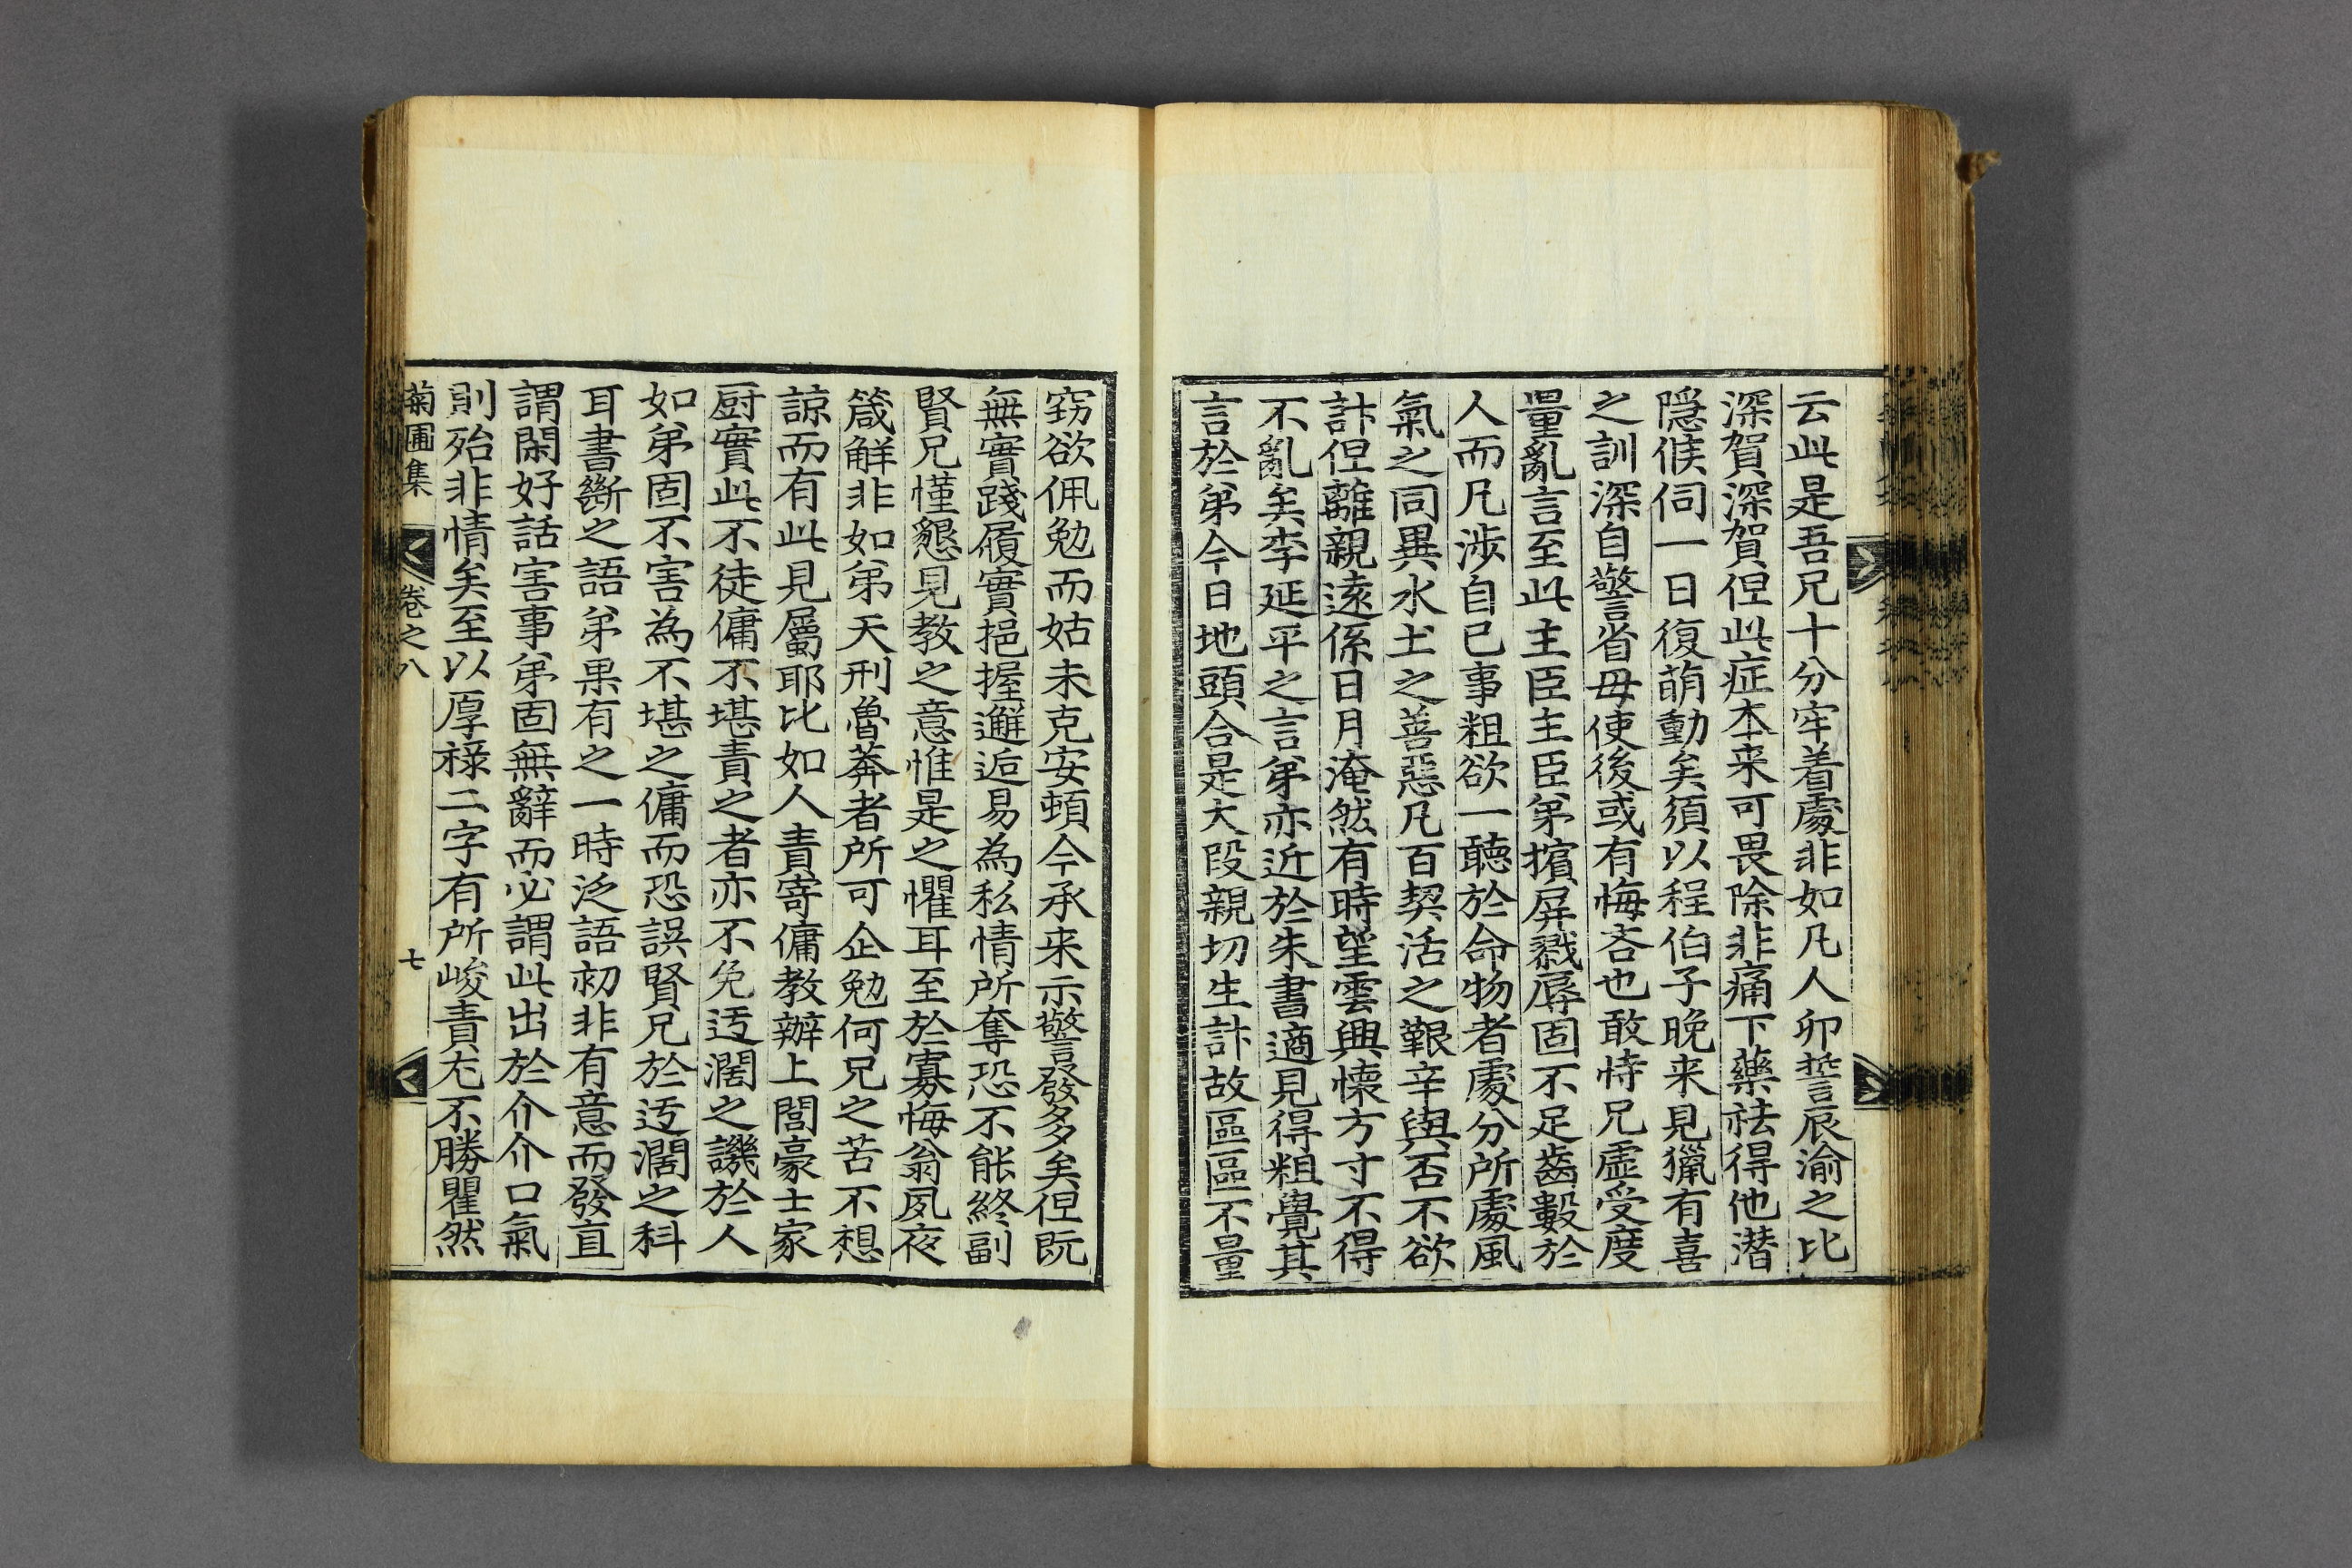 云此是吾兄十分牢着處非如凡人卯誓辰渝之比
深賀深賀但此症本来可畏除非痛下藥祛得他潜
隱候伺一日復萌動矣須以程伯子晚来見獵有喜
之訓深自警省毋使後或有悔吝也敢恃兄虛受度
量亂言至此主臣主臣弟擯屏戮辱固不足齒數於
人而凡涉自已事粗欲一聽於命物者處分所處風
氣之同異水土之善惡凡百契活之艱辛與否不欲
計但離親遠係日月淹然有時望雲興懷方寸不得
不亂矣李延平之言弟亦近於朱書適見得粗覺其
言於弟今日地頭合是大段親切生計故區區不量
窃欲佩勉而姑未克安頓今承来示警發多矣但既
無實踐履實挹握邂逅易為私情所奪恐不能終副
賢兄慬懇見教之意惟是之懼耳至於寡悔翁夙夜
箴觧非如弟天刑魯莽者所可企勉何兄之苦不想
諒而有此見屬耶比如人責寄傭教辦上閭豪士家
厨實此不徒傭不堪責之者亦不免迃濶之譏於人
如弟固不害為不堪之傭而恐誤賢兄於迃濶之科
耳書斷之語弟果有之一時泛語初非有意而發直
謂閑好話害事弟固無辭而必謂此出於介介口氣
則殆非情矣至以厚祿二字有所峻責尤不勝瞿然
菊圃集 卷之八 七